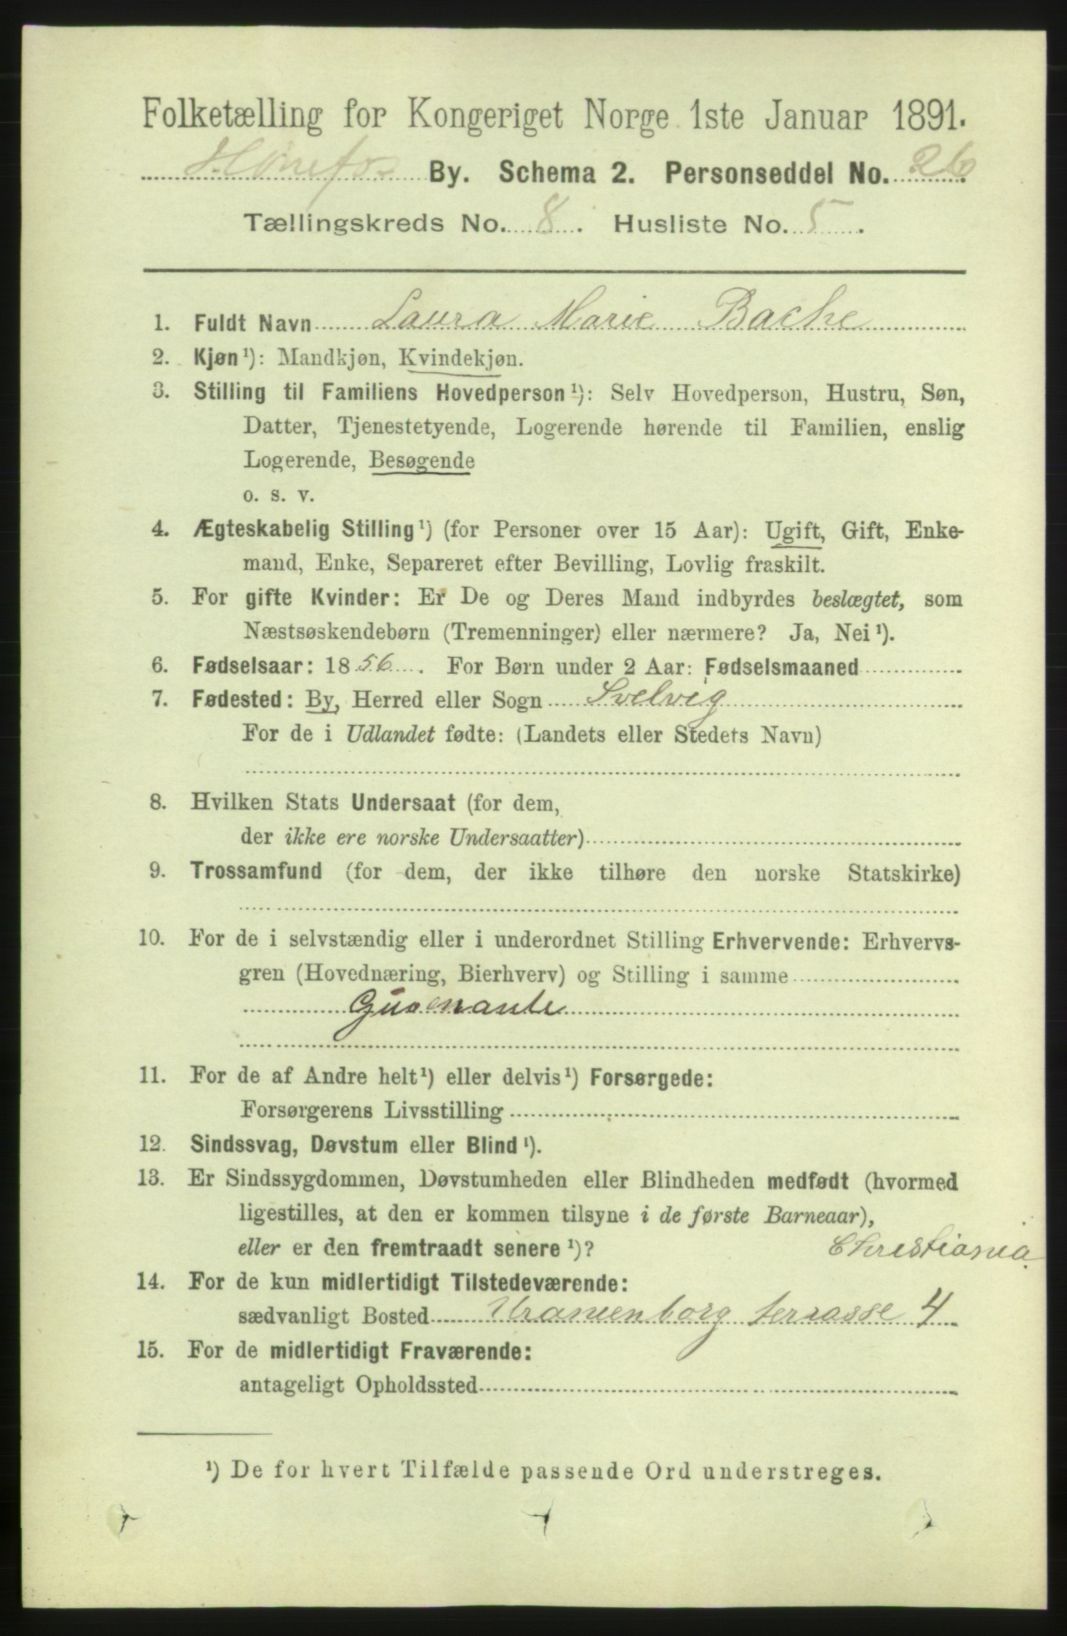 Folketælling for Kongeriget Norge 1ste Januar 1891.
Hønefos By. Schema 2. Personseddel No. 26
Tællingskreds No. 8. Husliste No. 5.
1. Fuldt Navn Laura Marie Bache
2. Kjøn¹): Mandkjøn, Kvindekjøn.
3. Stilling til Familiens Hovedperson¹): Selv Hovedperson, Hustru, Søn,
Datter, Tjenestetyende, Logerende hørende til Familien, enslig
Logerende, Besøgende
o. s. v.
4. Ægteskabelig Stilling¹) (for Personer over 15 Aar): Ugift, Gift, Enke-
mand, Enke, Separeret efter Bevilling, Lovlig fraskilt.
5. For gifte Kvinder: Er De og Deres Mand indbyrdes beslægtet, som
Næstsøskendebørn (Tremenninger) eller nærmere? Ja, Nei¹).
6. Fødselsaar: 1856. For Børn under 2 Aar: Fødselsmaaned
7. Fødested: By, Herred eller Sogn Svelvig
For de i Udlandet fødte: (Landets eller Stedets Navn)
8. Hvilken Stats Undersaat (for dem,
der ikke ere norske Undersaatter)
9. Trossamfund (for dem, der ikke tilhøre den norske Statskirke)
10. For de i selvstændig eller i underordnet Stilling Erhvervende: Erhvervs-
gren (Hovednæring, Bierhverv) og Stilling i samme
11. For de af Andre helt¹) eller delvis¹) Forsørgede:
Forsørgerens Livsstilling
12. Sindssvag, Døvstum eller Blind¹).
13. Er Sindssygdommen, Døvstumheden eller Blindheden medfødt (hvormed
ligestilles, at den er kommen tilsyne i de første Barneaar),
eller er den fremtraadt senere¹)? Christiania
14. For de kun midlertidigt Tilstedeværende:
sædvanligt Bosted Uranienborg terrasse 4
15. For de midlertidigt Fraværende:
antageligt Opholdssted
¹) De for hvert Tilfælde passende Ord understreges.